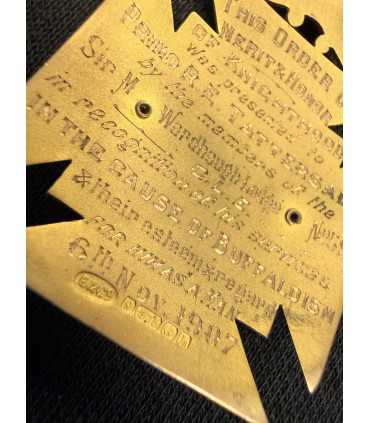 THIS ORDER O
MERIT & HONOR
OF KNIGHTHOOD
was presented to
PRIMO R. H. TATTERSA
by the members of the
SIR M Wardhaugh Lodge No
G.L.E.
in recognition of his services
IN THE CAUSE OF BUFFALOISM
& their esteem & regard
FOR HIM AS A MAN
6TH NOV. 1907